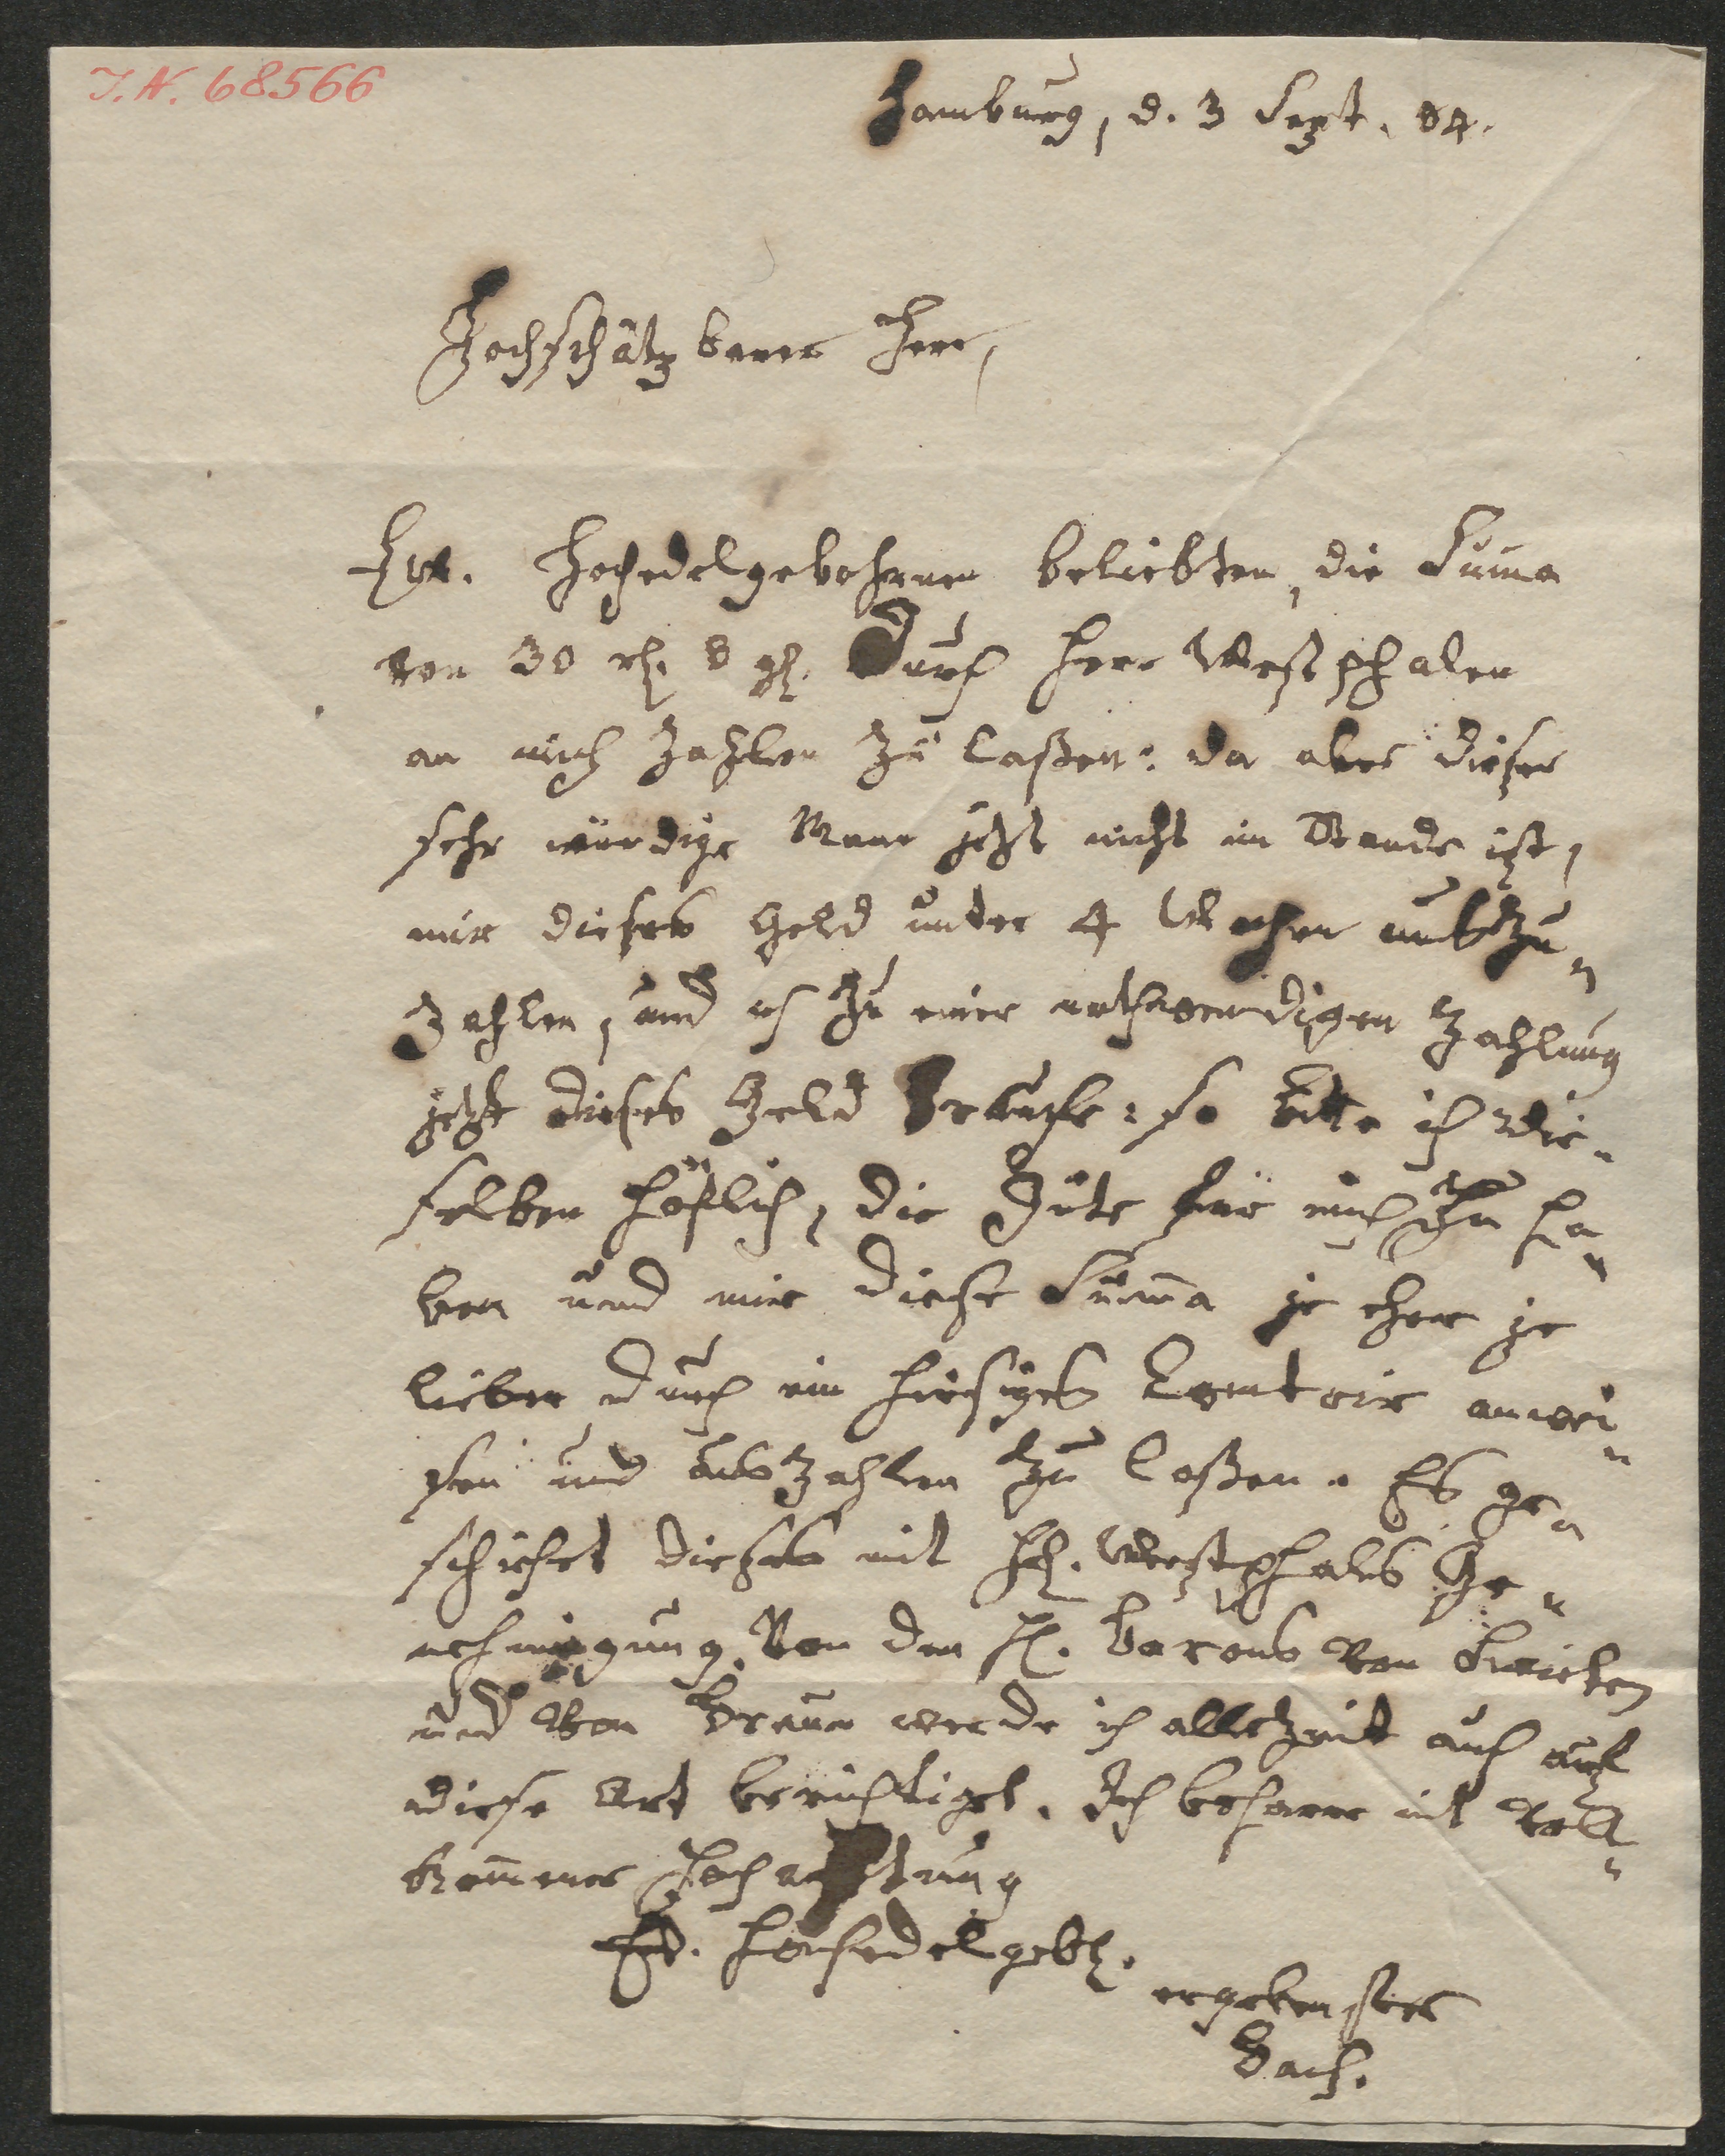 J. N. 68566
Hamburg, d. 3 Sept. 84.
Hochschätzbarer Herr,
Ew. Hochedelgebohrnen beliebten, die Suma
von 30 rh. 8 gh. durch Herr Westphalen
an mich zahlen zu laßen: da aber dieser
sehr würdige Mann jetzt nicht im Stande ist,
mir dieses Geld unter 4 Wochen
zahlen, und ich zu einer nothwendigen Zahlung
jetzt dieses Geld brauche: so bitte ich die-
selben höflich, die Güte für mich zu ha-
ben und mir diese Suma je eher je
lieber durch ein hiesiges Comtoir anwei-
sen und auszahlen zu laßen. Es ge-
schiehet dieses mit HE. Westphals Ge-
nehmigung. Von den H. Barons van Swieten
und von Braun werde ich allezeit auch auf
diese Art berichtiget. Ich beharre mit voll-
komener Hochachtung
Ew. Hochedelgebh.
ergebenster
Bach.